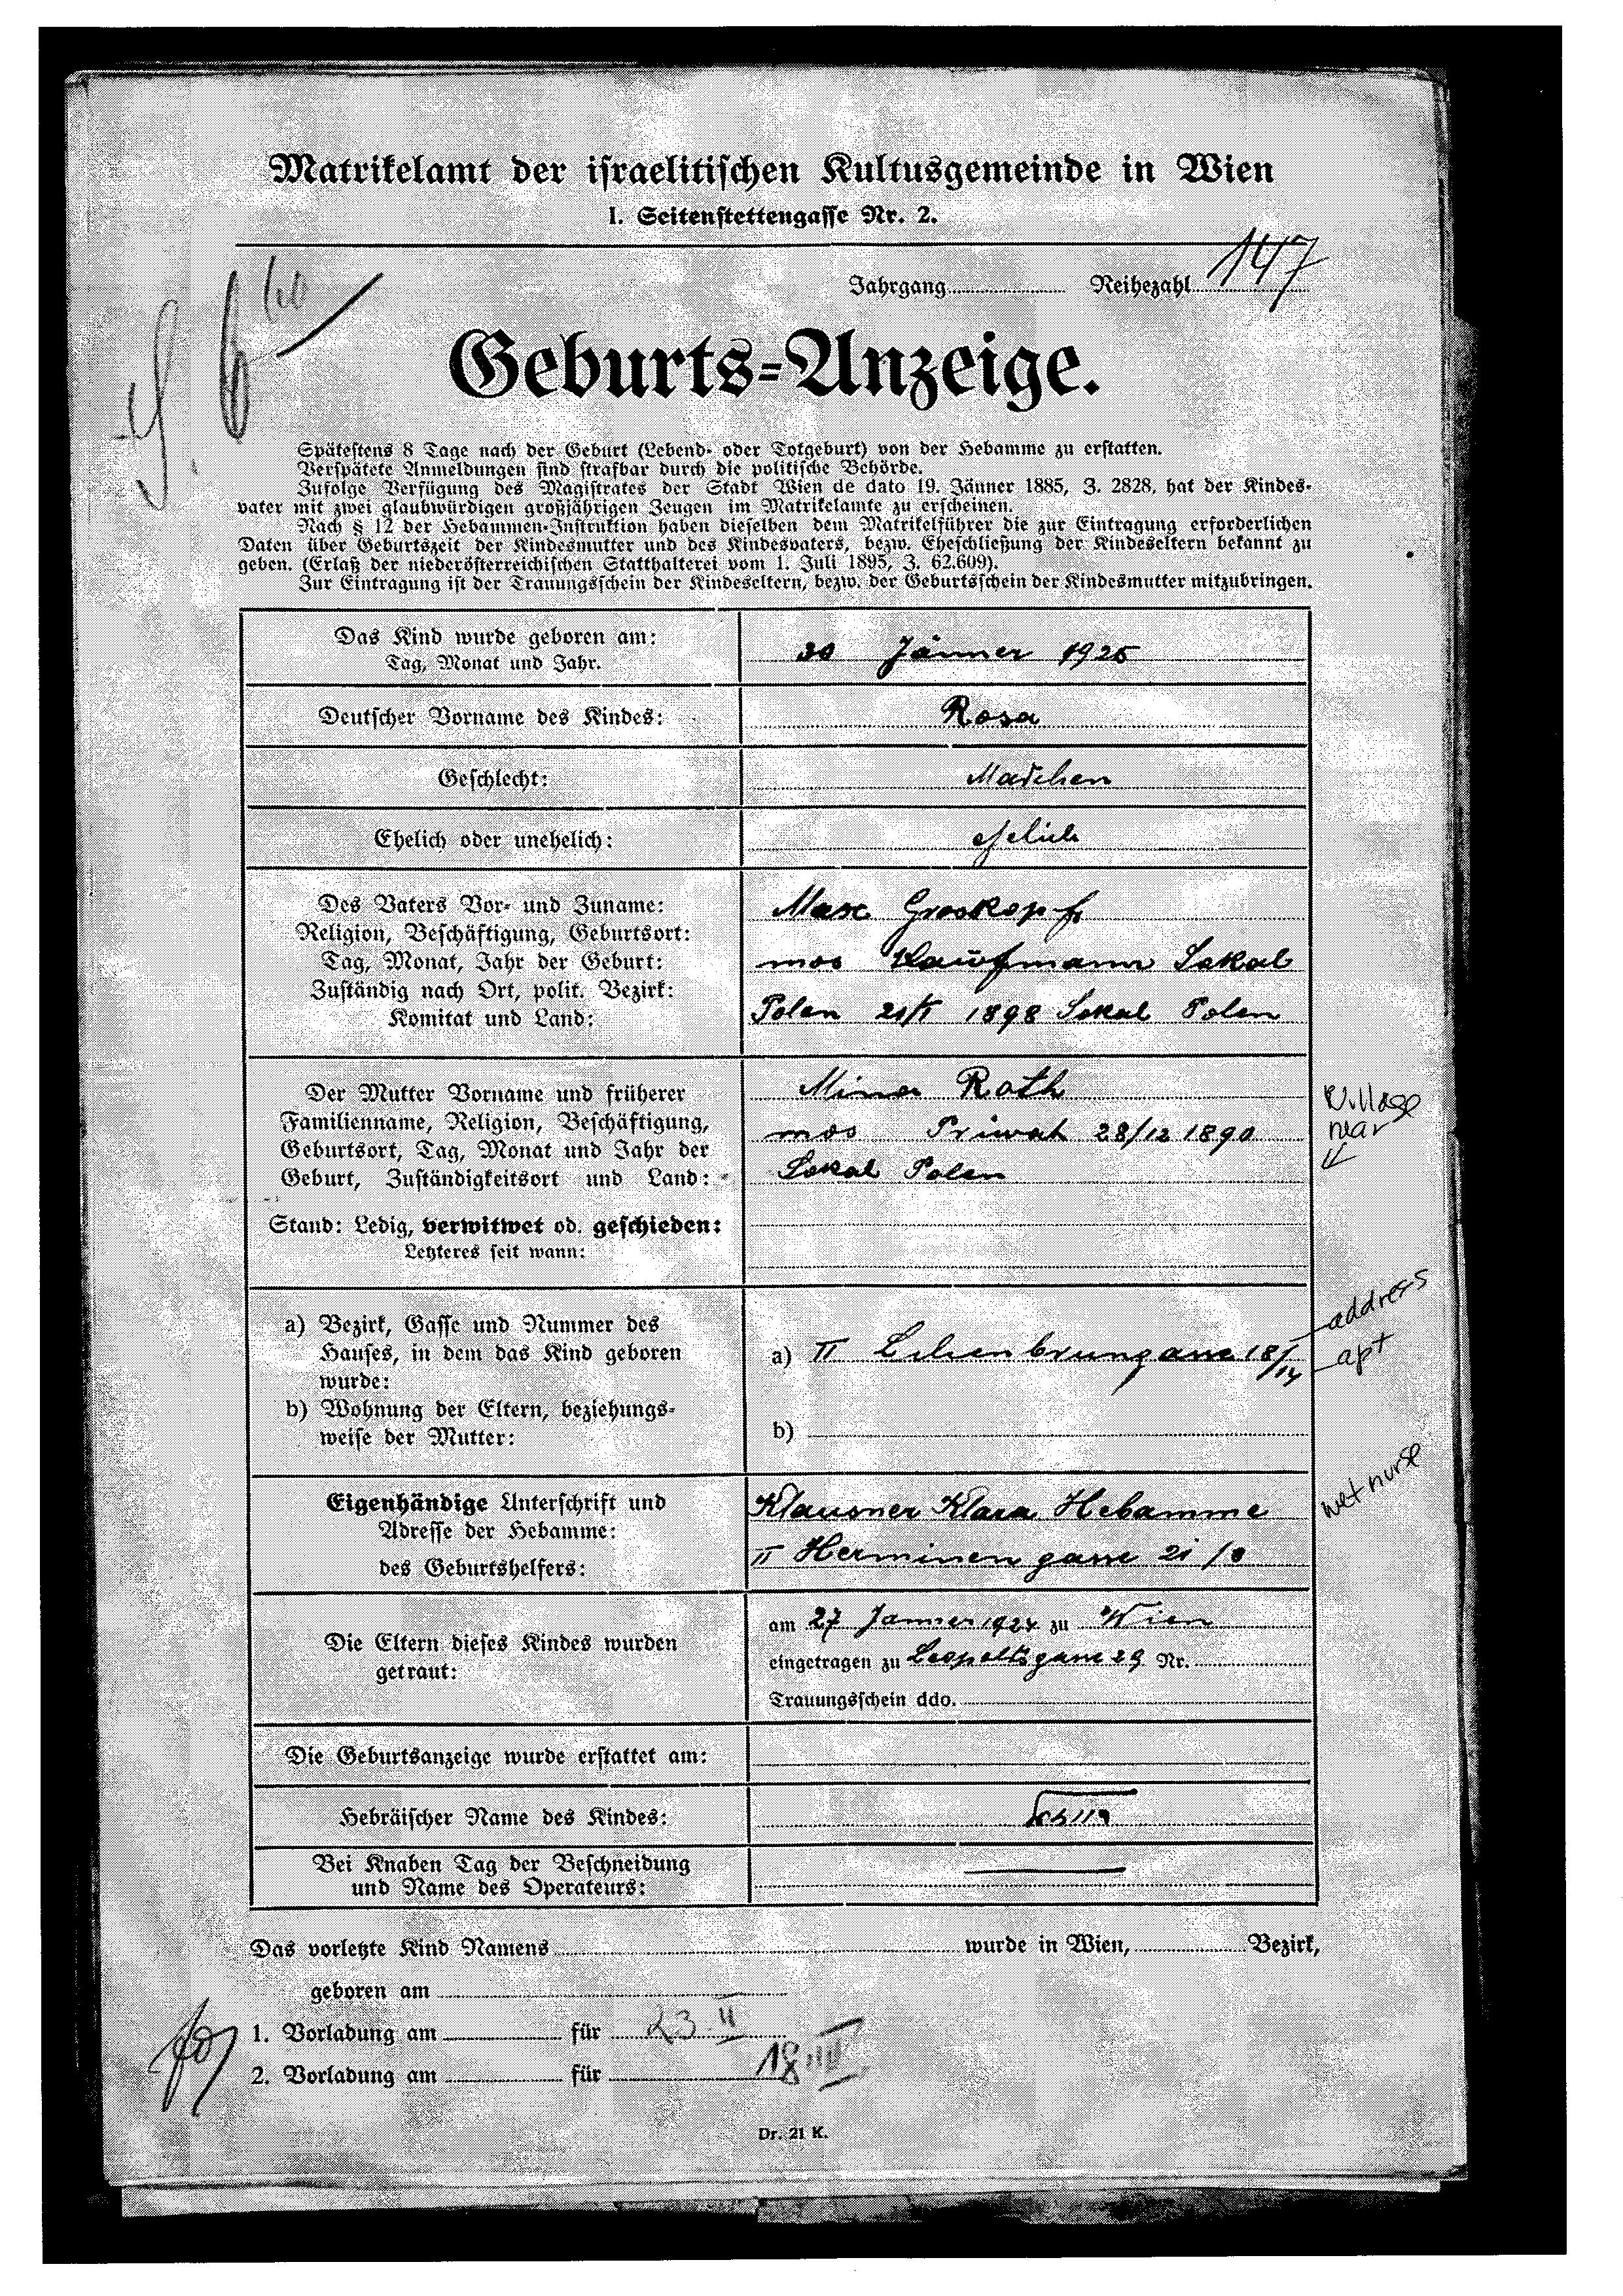 Matrikelamt der israelitischen Kultusgemeinde in Wien
I. Seitenstettengasse Nr. 2.
Jahrgang Reihezahl 147
Geburts-Anzeige.
Spätestens 8 Tage nach der Geburt (Lebend- oder Totgeburt) von der Hebamme zu erstatten.
Verspätete Anmeldungen sind strafbar durch die politische Behörde.
Zufolge Verfügung des Magistrates der Stadt Wien de dato 19. Jänner 1885, Z. 2828, hat der Kindes-
vater mit zwei glaubwürdigen großjährigen Zeugen im Matrikelamte zu erscheinen.
Nach § 12 der Hebammen-Instruktion haben dieselben dem Matrikelführer die zur Eintragung erforderlichen
Daten über Geburtszeit der Kindesmutter und des Kindesvaters, bezw. Eheschließung der Kindeseltern bekannt zu
geben. (Erlaß der niederösterreichischen Statthalterei vom 1. Juli 1895, Z. 62.609).
Zur Eintragung ist der Trauungsschein der Kindeseltern, bezw. der Geburtsschein der Kindesmutter mitzubringen.
Das Kind wurde geboren am:
Tag, Monat und Jahr.
30 Jänner 1925
Deutscher Vorname des Kindes:
Rosa
Geschlecht:
Madchen
Ehelich oder unehelich:
ehelich
Des Vaters Vor- und Zuname:
Religion, Beschäftigung, Geburtsort:
Tag, Monat, Jahr der Geburt:
Zuständig nach Ort, polit. Bezirk:
Komitat und Land:
Max Groskopf
mos Kaufmann Sokal
Polen 1898 Sokal Polen
Der Mutter Vorname und früherer
Familienname, Religion, Beschäftigung,
Geburtsort, Tag, Monat und Jahr der
Geburt, Zuständigkeitsort und Land:
Stand: Ledig, verwitwet od. geschieden:
Letzteres seit wann:
Mina Roth
mos Priwat 28/12 1890
Sokal Polen
Village
near
a) Bezirk, Gasse und Nummer des
Hauses, in dem das Kind geboren
wurde:
b) Wohnung der Eltern, beziehungs-
weise der Mutter:
a) II 18/14
b)
address
apt
Eigenhändige Unterschrift und
Adresse der Hebamme:
des Geburtshelfers:
Klausner Klara Hebamme
II Herminen gasse 21/8
wet nurse
Die Eltern dieses Kindes wurden
getraut:
am 27 Janner 1924 zu Wien
eingetragen zu Leopoltsgasse 29 Nr.
Trauungsschein ddo.
Die Geburtsanzeige wurde erstattet am:
Hebräischer Name des Kindes:
Bei Knaben Tag der Beschneidung
und Name des Operateurs:
Das vorletzte Kind Namens wurde in Wien, Bezirk,
geboren am
1. Vorladung am für 23 II
2. Vorladung am für 18 III
Dr. 21 K.